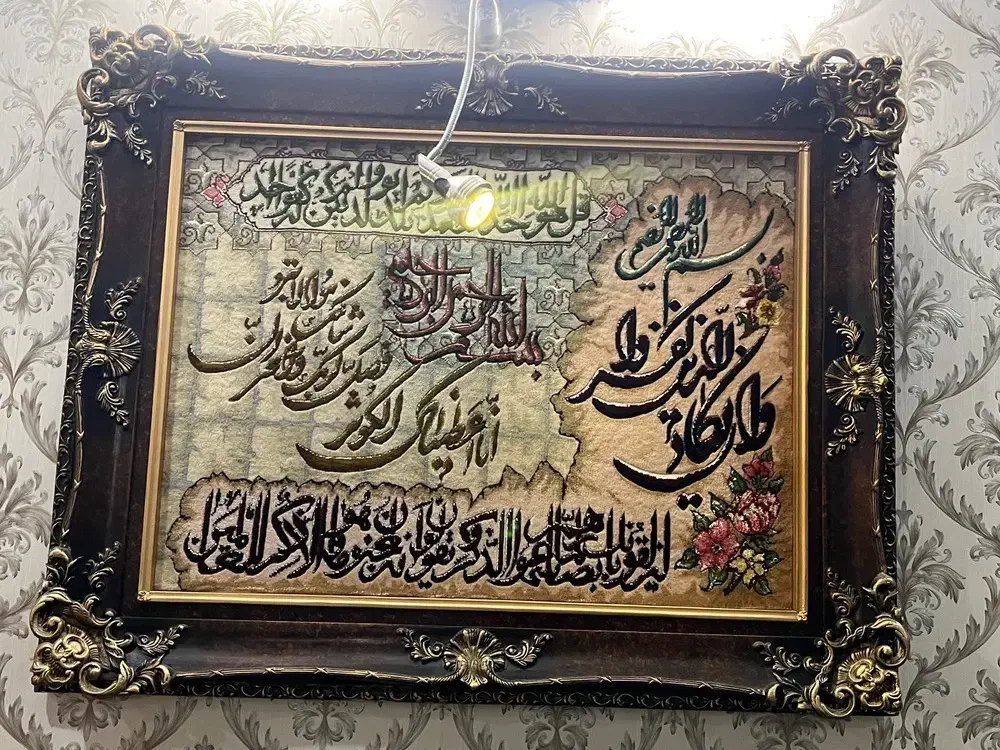 قل هو الله احد الله الصمد لم يلد ولم يولد ولم يكن له كفوا احد
بسم الله الرحمن الرحيم
وان يكاد الذين كفروا
ليزلقونك بابصارهم لما سمعوا الذكر ويقولون انه لمجنون وما هو الا ذكر للعالمين
بسم الله الرحمن الرحيم
انا اعطيناك الكوثر
فصل لربك وانحر ان
شانئك
هو الابتر